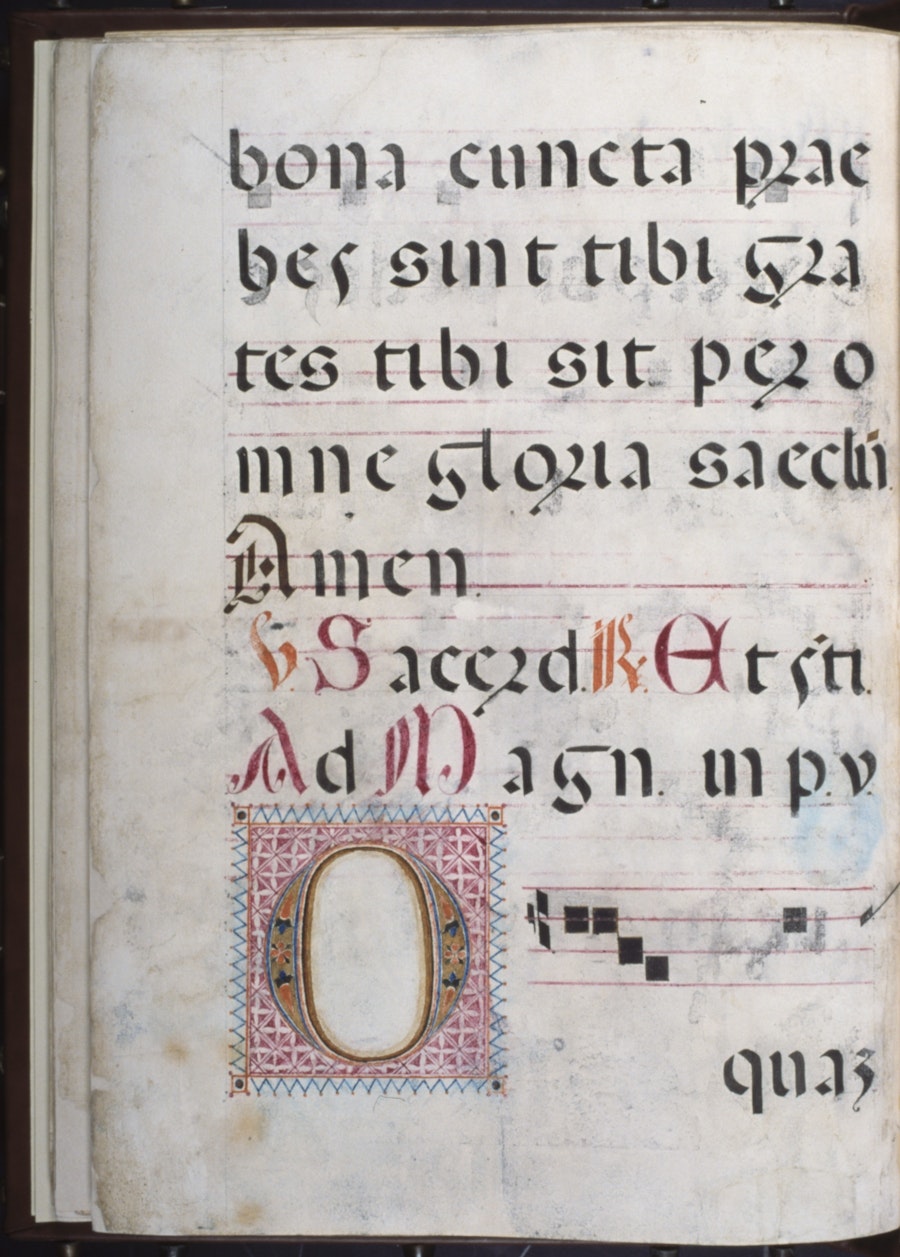 bona cuncta prae
bes sint tibi gra
tes tibi sit per o
mne gloria saeclū.
Amen.
V. Sacerd. R. Et sc̄ti.
Ad Magn. in p. v.
O quaz